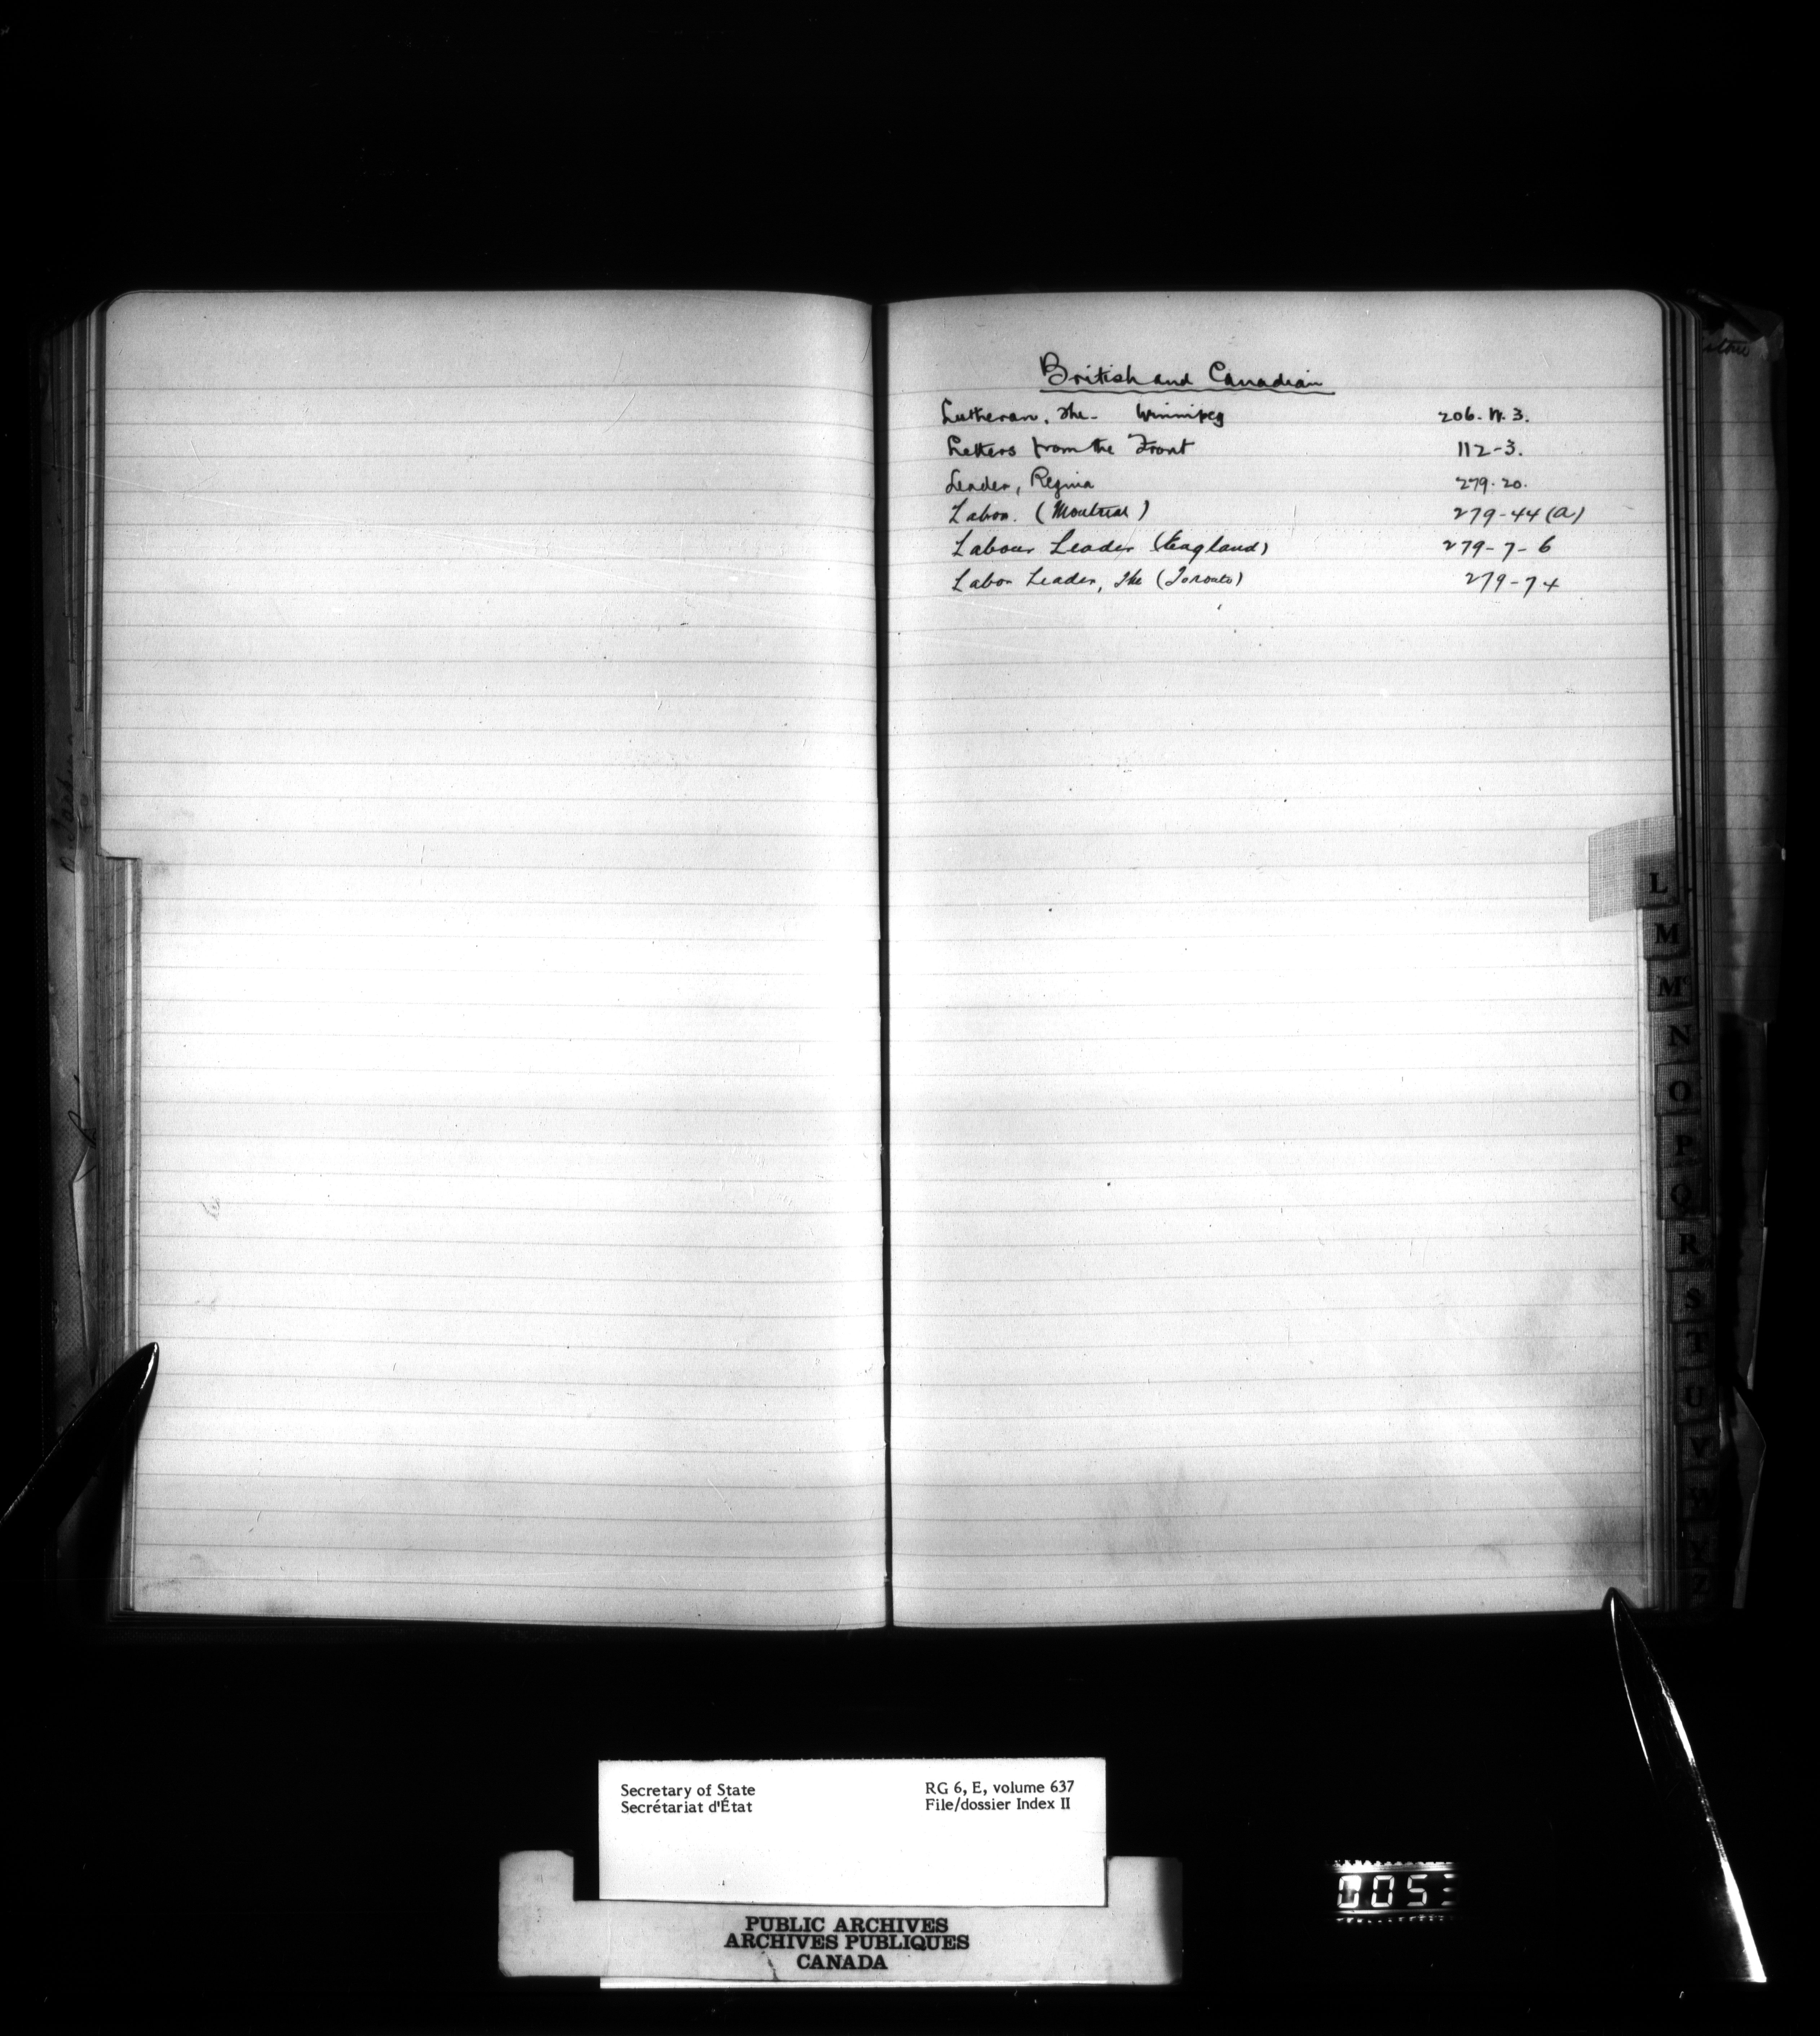 British and Canadian
Lutheran, The - Winnipeg 206. W. 3.
Letters from the Front 112-3.
Leader, Regina 279. 20.
Labor. (Montreal) 279-44 (a)
Labour Leader (England) 279-7-6
Labor Leader, The (Toronto) 279-74
L
M
Mc
N
O
P
Q
R
S
T
U
V
Secretary of State RG 6, E, volume 637
Secrétariat d'État File/dossier Index II
PUBLIC ARCHIVES
ARCHIVES PUBLIQUES
CANADA
0053